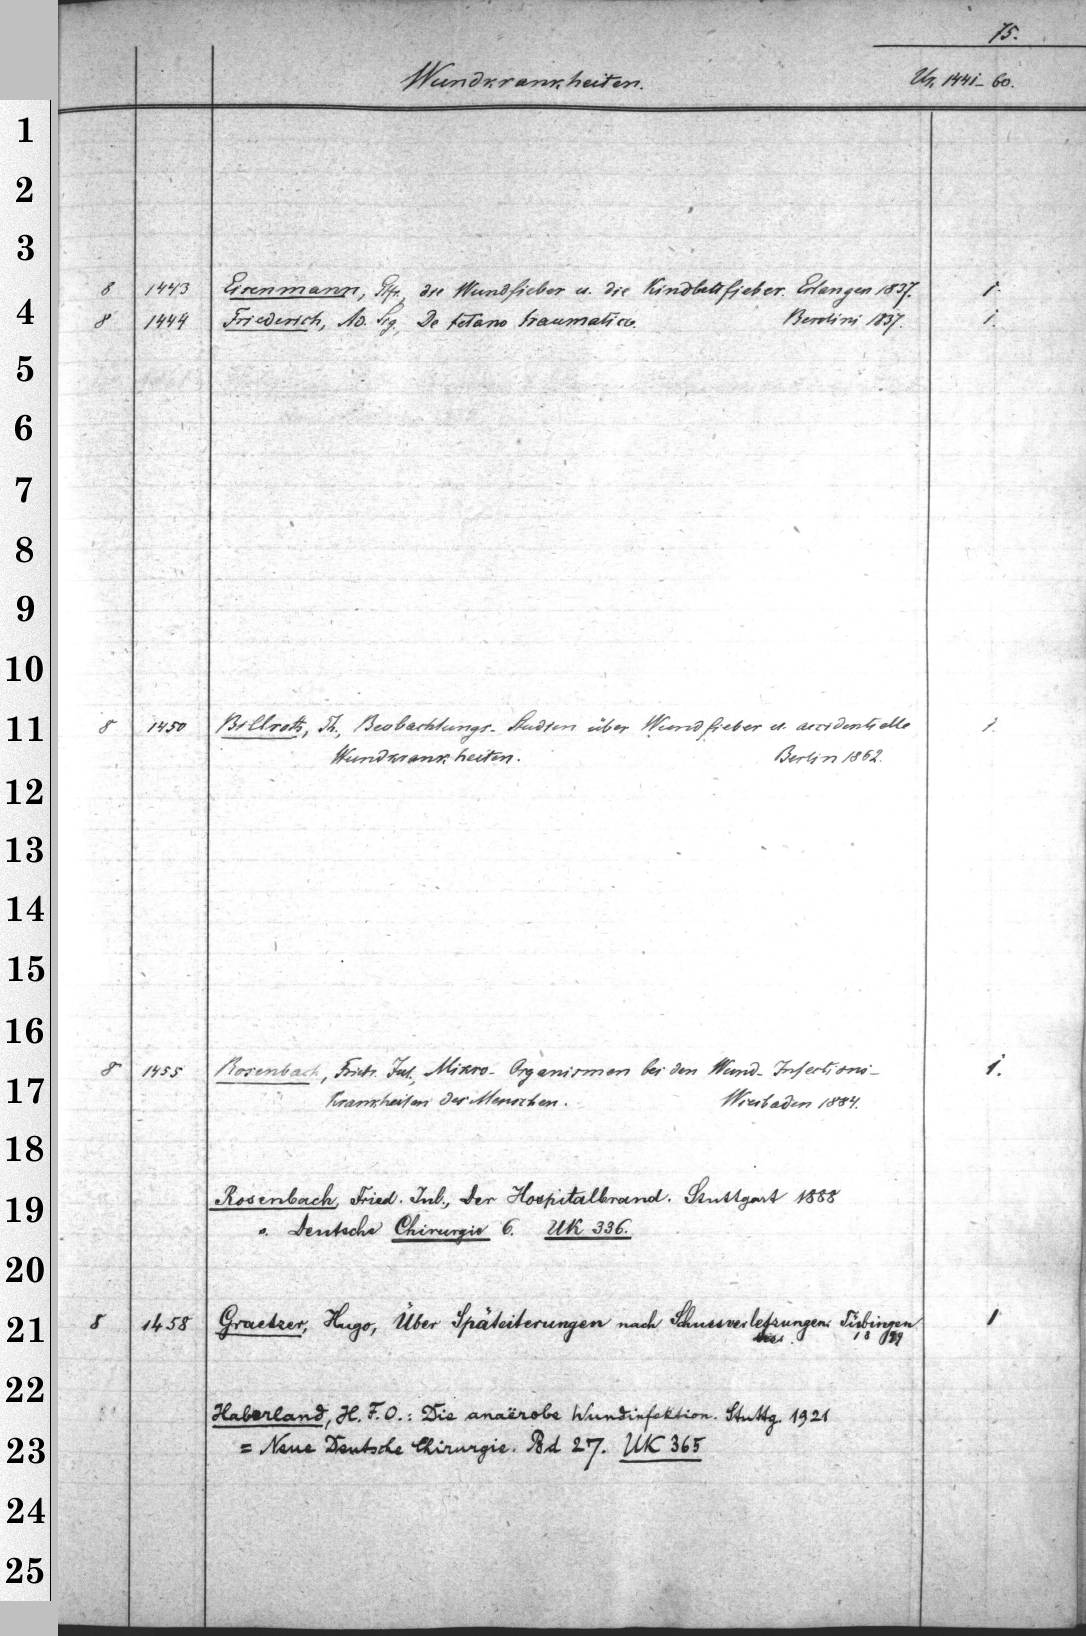 75.
Wundkrankheiten. Uk 1441–60.
1
2
3
8 1443 Eisenmann, die Wundfieber u. die Kindbettfieber. Erlangen 1837. 1.
4
8 1444 Friederich, De tetano traumatico. Berolini 1837. 1.
5
6
7
8
9
10
11
8 1450 Billroth, Th., Beobachtungs-Studien über Wundfieber u. accidentelle 1.
Wundkrankheiten. Berlin 1862.
12
13
14
15
16
8 1455 Rosenbach, Friedr. Jul., Mikro-Organismen bei den Wund-Infections- 1.
17
Krankheiten des Menschen. Wiesbaden 1884.
18
Rosenbach, Fried. Jul., Der Hospitalbrand. Stuttgart 1888
19
s. Deutsche Chirurgie 6. UK 336.
20
8 1458 Graetzer, Hugo, Über Späteiterungen nach Schussverletzungen. Tübingen 1
21
Diss. 1899
22
Haberland, H. F. O.: Die anaërobe Wundinfektion. Stuttg. 1921
23
= Neue Deutsche Chirurgie. Bd 27. UK 365
24
25